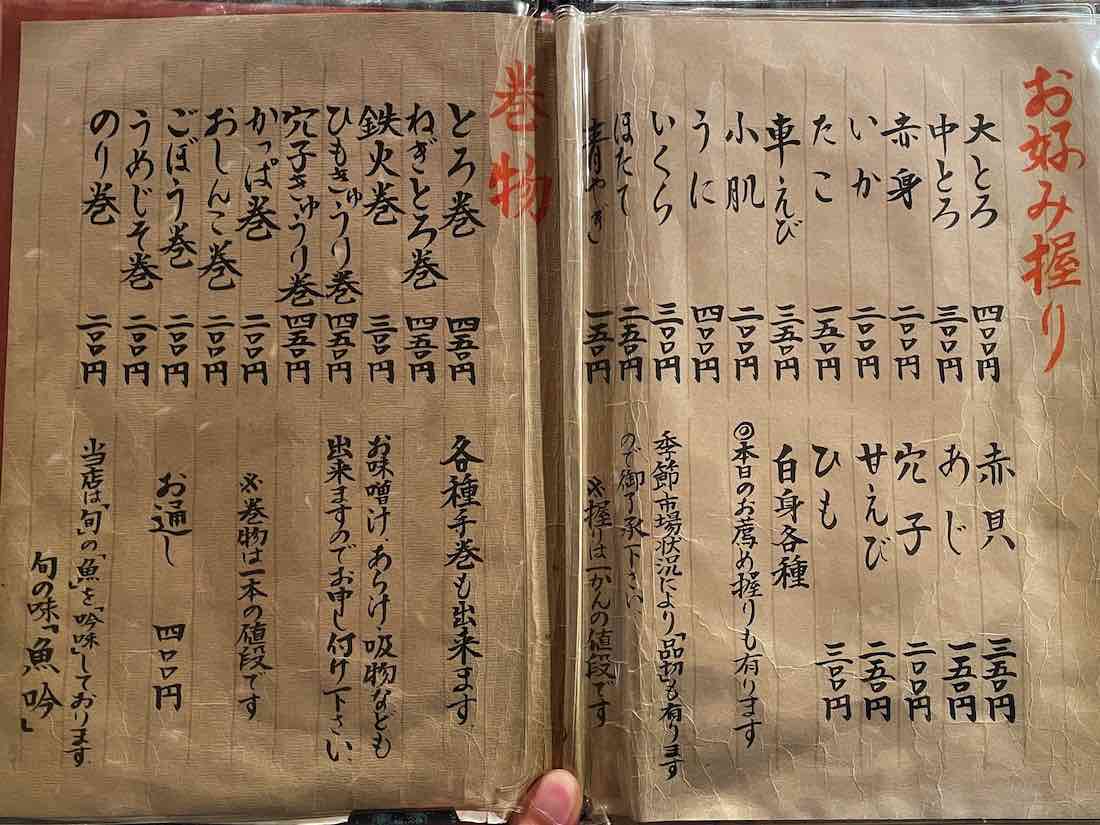 お好み握り
大とろ 四〇〇円
中とろ 三〇〇円
赤身 二〇〇円
いか 二〇〇円
たこ 一五〇円
車えび 三五〇円
小肌 二〇〇円
うに 四〇〇円
いくら 三〇〇円
ほたて 二五〇円
青やぎ 一五〇円
赤貝 三五〇円
あじ 一五〇円
穴子 二〇〇円
甘えび 二五〇円
ひも 三〇〇円
白身各種
◎本日のお薦め握りも有ります
季節市場状況により「品切」も有ります
ので御了承下さい
※握りは一かんの値段です
巻物
とろ巻 四五〇円
ねぎとろ巻 四五〇円
鉄火巻 三〇〇円
ひもきゅうり巻 四五〇円
穴子きゅうり巻 四五〇円
かっぱ巻 二〇〇円
おしんこ巻 二〇〇円
ごぼう巻 二〇〇円
うめじそ巻 二〇〇円
のり巻 二〇〇円
各種手巻も出来ます
お味噌汁、あら汁、吸物なども
出来ますのでお申し付け下さい、
※巻物は一本の値段です
お通し 四〇〇円
当店は、「旬」の「魚」を「吟味」しております
旬の味「魚吟」